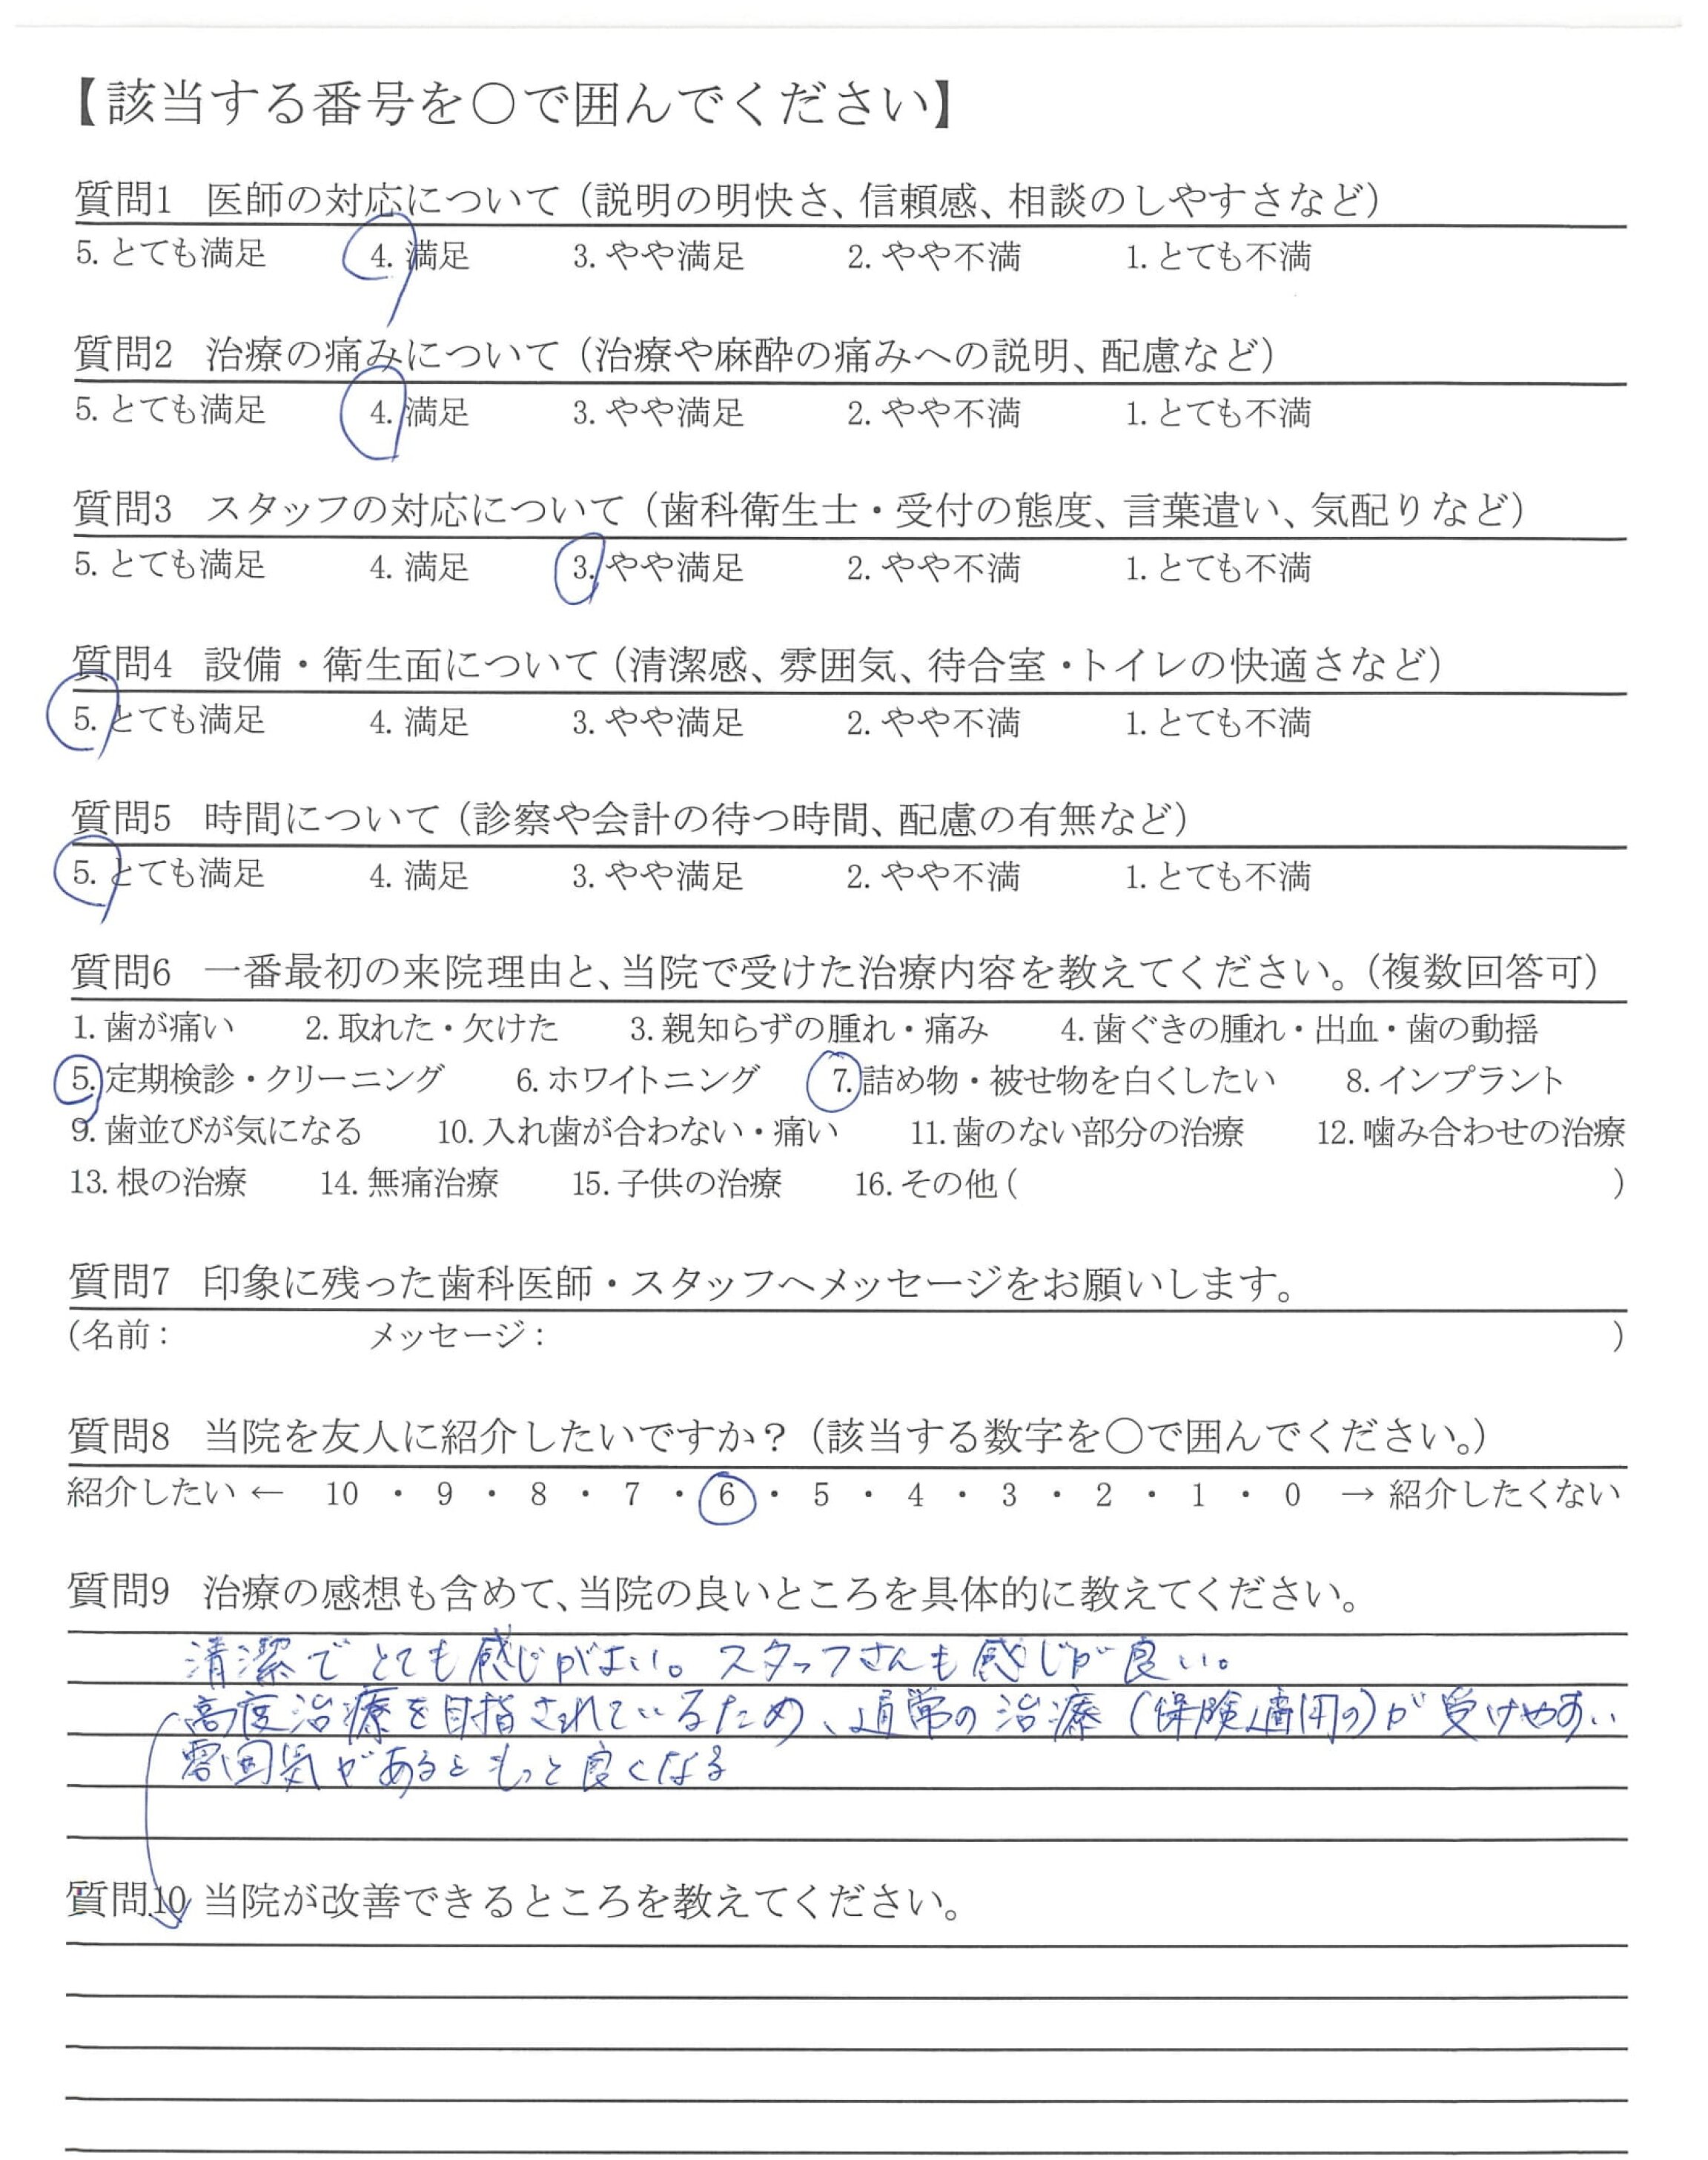 【該当する番号を○で囲んでください】
質問1 医師の対応について（説明の明快さ、信頼感、相談のしやすさなど）
5. とても満足 4. 満足 3. やや満足 2. やや不満 1. とても不満
質問2 治療の痛みについて（治療や麻酔の痛みへの説明、配慮など）
5. とても満足 4. 満足 3. やや満足 2. やや不満 1. とても不満
質問3 スタッフの対応について（歯科衛生士・受付の態度、言葉遣い、気配りなど）
5. とても満足 4. 満足 3. やや満足 2. やや不満 1. とても不満
質問4 設備・衛生面について（清潔感、雰囲気、待合室・トイレの快適さなど）
5. とても満足 4. 満足 3. やや満足 2. やや不満 1. とても不満
質問5 時間について（診察や会計の待つ時間、配慮の有無など）
5. とても満足 4. 満足 3. やや満足 2. やや不満 1. とても不満
質問6 一番最初の来院理由と、当院で受けた治療内容を教えてください。（複数回答可）
1. 歯が痛い 2. 取れた・欠けた 3. 親知らずの腫れ・痛み 4. 歯ぐきの腫れ・出血・歯の動揺
5. 定期検診・クリーニング 6. ホワイトニング 7. 詰め物・被せ物を白くしたい 8. インプラント
9. 歯並びが気になる 10. 入れ歯が合わない・痛い 11. 歯のない部分の治療 12. 噛み合わせの治療
13. 根の治療 14. 無痛治療 15. 子供の治療 16. その他 ( )
質問7 印象に残った歯科医師・スタッフへメッセージをお願いします。
(名前： メッセージ： )
質問8 当院を友人に紹介したいですか？（該当する数字を○で囲んでください。）
紹介したい ← 10 ・ 9 ・ 8 ・ 7 ・ 6 ・ 5 ・ 4 ・ 3 ・ 2 ・ 1 ・ 0 → 紹介したくない
質問9 治療の感想も含めて、当院の良いところを具体的に教えてください。
清潔でとても感じがよい。スタッフさんも感じが良い。
高度治療を目指されているため、通常の治療（保険適用の）が受けやすい
雰囲気があるともっと良くなる
質問10 当院が改善できるところを教えてください。